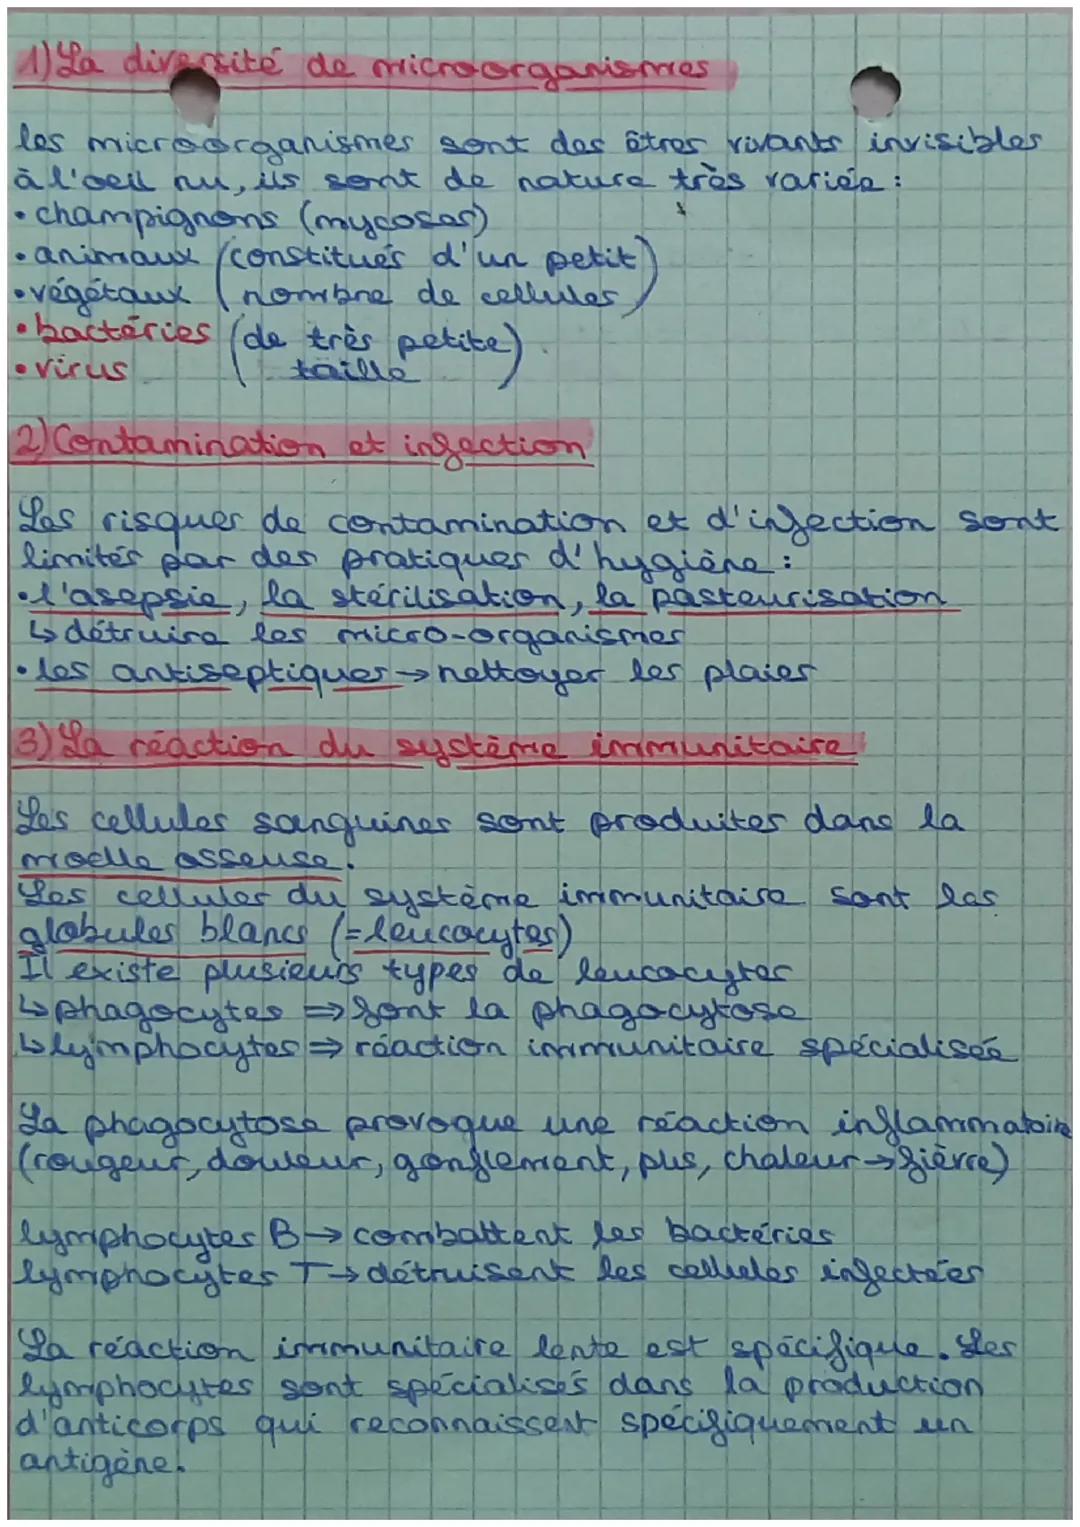 1) La diversité de microorganismes
les microorganismes sont des êtres vivants invisibles
à l'oeil nu, ils sont de nature très variée :
• champignons (mycoses)
• animaux (constitués d'un petit
• végétaux nombre de cellules)
• bactéries (de très petite
• virus taille)
2) Contamination et infection
Les risques de contamination et d'infection sont
limités par des pratiques d'hygiène :
• l'asepsie, la stérilisation, la pasteurisation
↳ détruire les micro-organismes
• les antiseptiques → nettoyer les plaies
3) La réaction du système immunitaire
Les cellules sanguines sont produites dans la
moelle osseuse.
Les cellules du système immunitaire sont les
globules blancs (=leucocytes)
Il existe plusieurs types de leucocytes
↳ phagocytes ⇒ font la phagocytose
↳ lymphocytes ⇒ réaction immunitaire spécialisée
La phagocytose provoque une réaction inflammatoire
(rougeur, douleur, gonflement, pus, chaleur → fièvre)
lymphocytes B → combattent les bactéries
lymphocytes T → détruisent les cellules infectées
La réaction immunitaire lente est spécifique. Les
lymphocytes sont spécialisés dans la production
d'anticorps qui reconnaissent spécifiquement un
antigène.